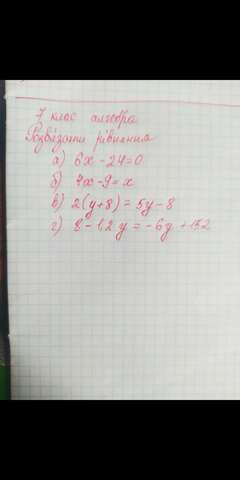 7 клас алгебра
Розв'язати рівняння
а) 6x - 24 = 0
б) 7x - 9 = x
в) 2(y+8) = 5y - 8
г) 8 - 1,2y = -6y + 15,2